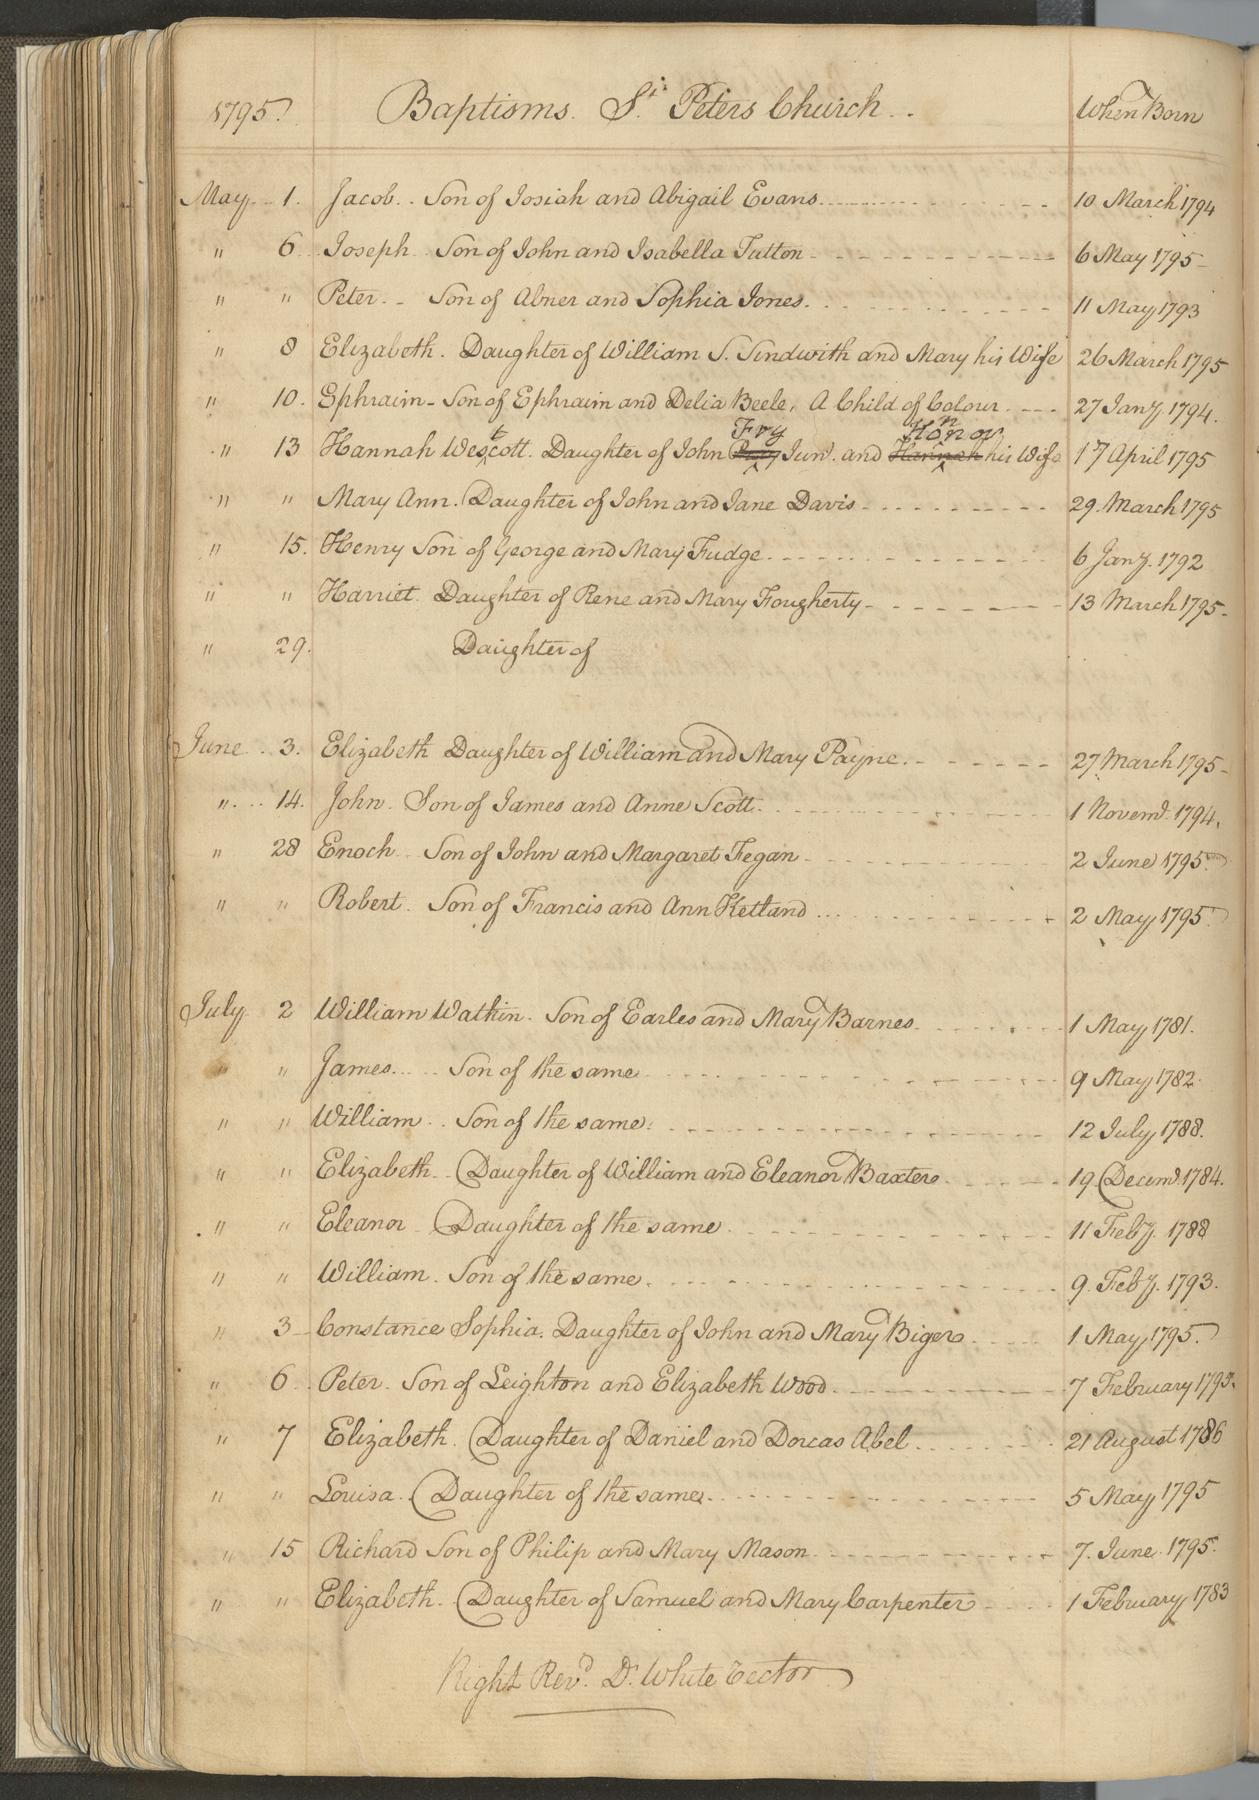 1795. Baptisms. St. Peters Church. When Born
May 1. Jacob. Son of Josiah and Abigail Evans. 10 March 1794
" 6 Joseph Son of John and Isabella Tutton 6 May 1795
" " Peter. Son of Abner and Sophia Jones. 11 May 1793
" 8 Elizabeth. Daughter of William S. Sindwith and Mary his Wife 26 March 1795
" 10. Ephraim Son of Ephraim and Delia Beele, A Child of Colour. 27 Jany. 1794.
Fry Honor
" 13 Hannah Westcott. Daughter of John Junr. and Hannah his Wife 17 April 1795
" " Mary Ann. Daughter of John and Jane Davis 29. March 1795
" 15. Henry Son of George and Mary Fudge. 6 Jany. 1792
" " Harriet. Daughter of Rene and Mary Fougherty 13 March 1795
" 29. Daughter of
June 3. Elizabeth Daughter of William and Mary Payne. 27 March 1795
" 14. John. Son of James and Anne Scott. 1 Novemr. 1794.
" 28 Enoch Son of John and Margaret Fegan 2 June 1795
" " Robert. Son of Francis and Ann Ketland 2 May 1795
July 2 William Watkin. Son of Earles and Mary Barnes. 1 May 1781.
" " James. Son of the same 9 May 1782.
" " William. Son of the same. 12 July 1788.
" " Elizabeth. Daughter of William and Eleanor Baxter 19 Decemr. 1784.
" " Eleanor Daughter of the same 11 Feby. 1788
" " William. Son of the same. 9. Feby. 1793.
" 3 Constance Sophia. Daughter of John and Mary Biger 1 May 1795.
" 6. Peter. Son of Leighton and Elizabeth Wood. 7 February 1795.
" 7 Elizabeth. Daughter of Daniel and Dorcas Abel. 21 August 1786
" " Louisa. Daughter of the same. 5 May 1795
" 15 Richard Son of Philip and Mary Mason. 7. June. 1795.
" " Elizabeth. Daughter of Samuel and Mary Carpenter 1 February 1783
Right Revd. Dr. White Rector